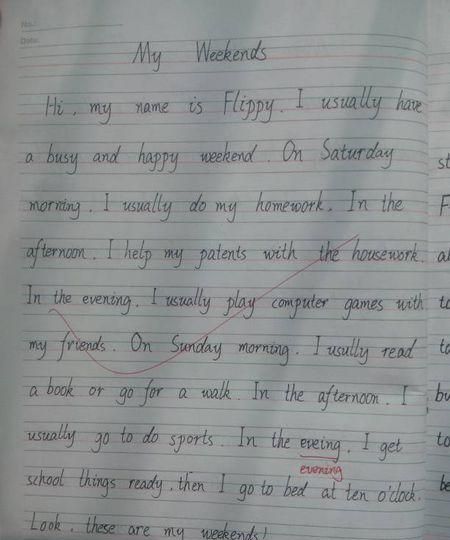 No.:
Date:
My Weekends
Hi, my name is Flippy. I usually have
a busy and happy weekend. On Saturday
st
morning, I usually do my homework. In the
F
afternoon, I help my patents with the housework.
al
In the evening, I usually play computer games with
to
my friends. On Sunday morning, I usully read
to
a book or go for a walk. In the afternoon, I
bu
usually go to do sports. In the eveing, I get
to
evening
school things ready, then I go to bed at ten o'clock.
be
Look, these are my weekends!